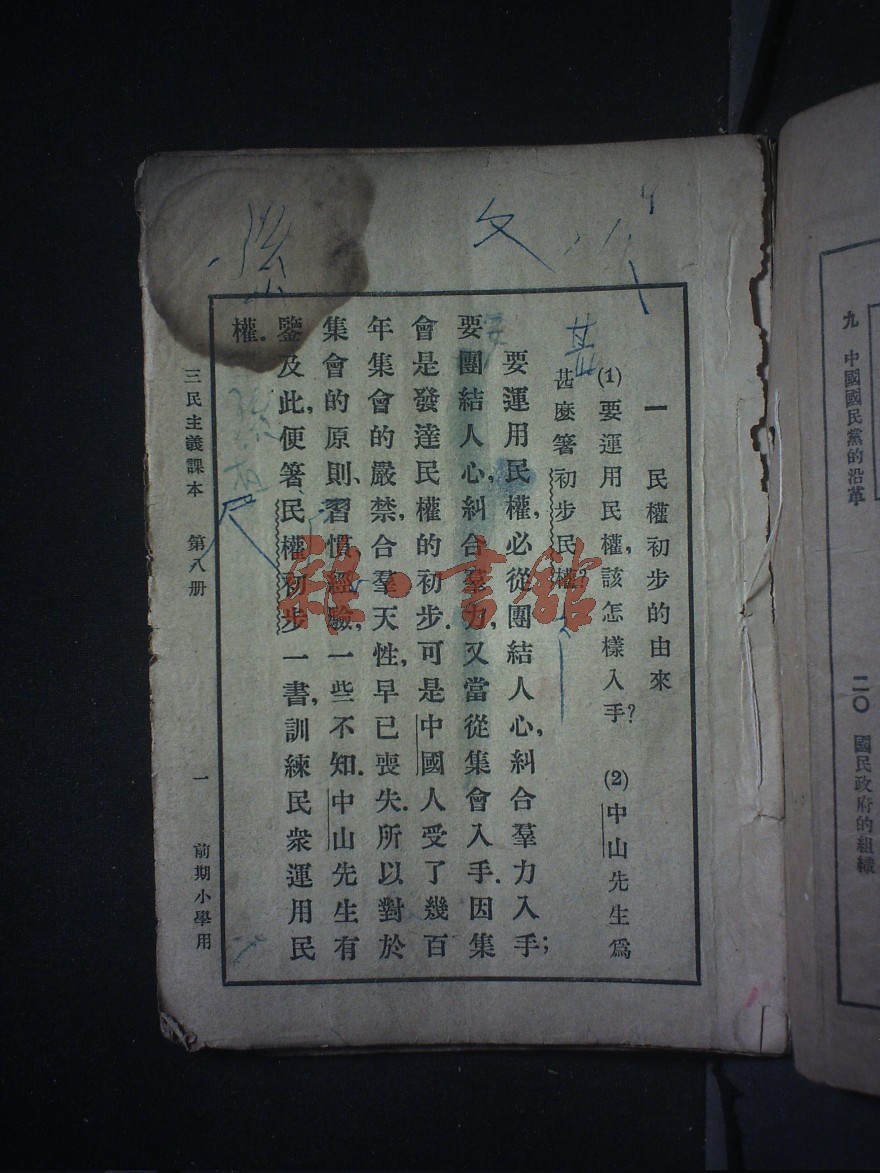 一 民權初步的由來
(1)要運用民權,該怎樣入手? (2)中山先生爲
甚麼箸初步民權?
要運用民權,必從團結人心,糾合羣力入手;
要團結人心,糾合羣力,又當從集會入手.因集
會是發達民權的初步.可是中國人受了幾百
年集會的嚴禁,合羣天性,早已喪失.所以對於
集會的原則、習慣、經驗,一些不知.中山先生有
鑒及此,便箸民權初步一書,訓練民衆運用民
權.
三民主義課本 第八册 一 前期小學用
九 中國國民黨的沿革 二〇 國民政府的組織
文
甚
雜·書館